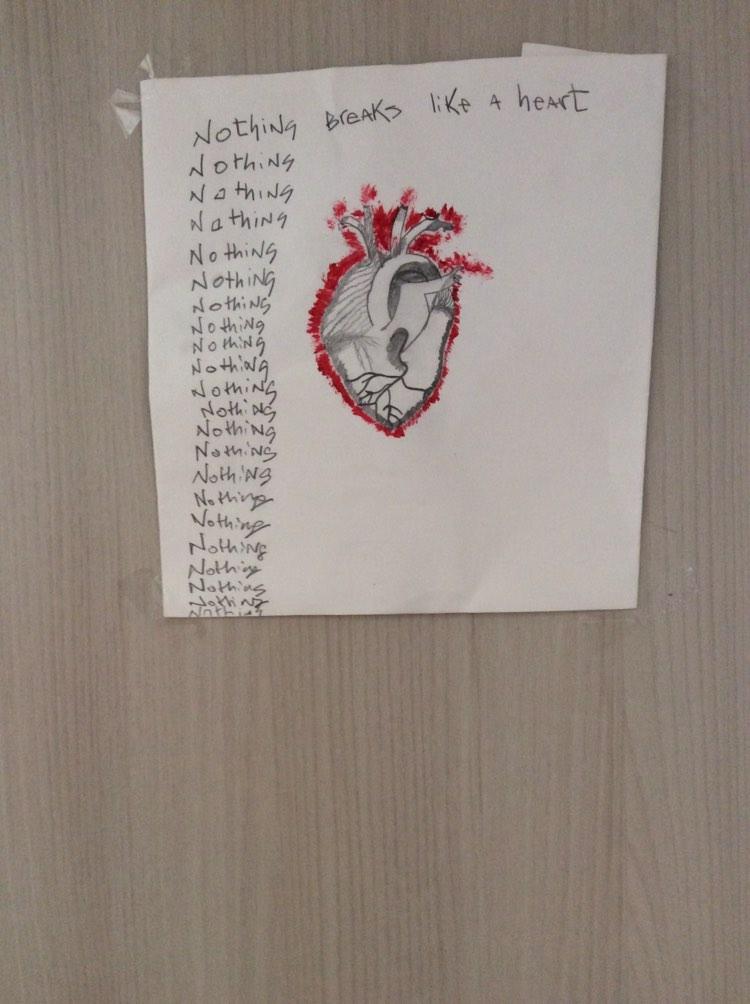 Nothing Breaks like A heart
Nothing
Nothing
Nothing
Nothing
Nothing
Nothing
Nothing
Nothing
Nothing
Nothing
Nothing
Nothing
Nothing
Nothing
Nothing
Nothing
Nothing
Nothing
Nothing
Nothing
Nothing